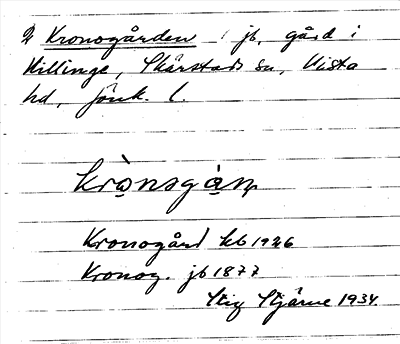 Kronogården i jb, gård i
Killinge, Skärstads sn, Vista
hd, Jönk. l.
Kronogård kb 1926
Kronog. jb 1877
Stig Stjärne 1934